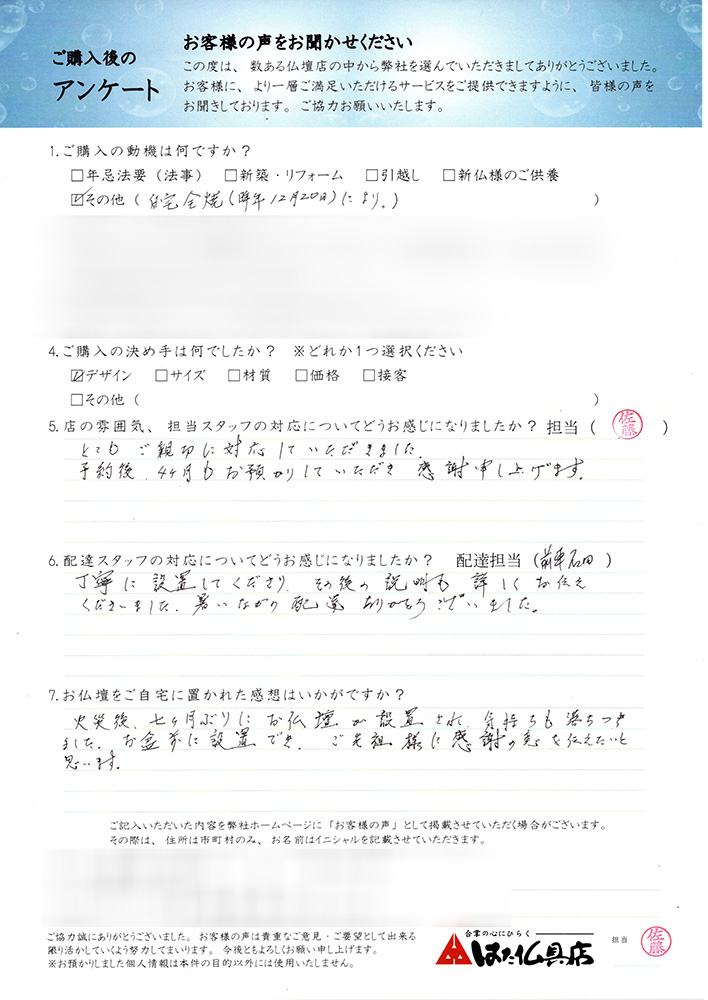 ご購入後の
アンケート
お客様の声をお聞かせください
この度は、数ある仏壇店の中から弊社を選んでいただきましてありがとうございました。
お客様に、より一層ご満足いただけるサービスをご提供できますように、皆様の声を
お聞きしております。ご協力お願いいたします。
1.ご購入の動機は何ですか?
□年忌法要(法事) □新築・リフォーム □引越し □新仏様のご供養
☑その他(自宅全焼(昨年12月20日)により。) )
4.ご購入の決め手は何でしたか? ※どれか1つ選択ください
☑デザイン □サイズ □材質 □価格 □接客
□その他( )
5.店の雰囲気、担当スタッフの対応についてどうお感じになりましたか?担当(佐藤)
とてもご親切に対応していただきました。
予約後、4ヶ月もお預かりしていただき感謝申し上げます。
6.配達スタッフの対応についてどうお感じになりましたか? 配達担当(石田)
丁寧に設置してくださり、その後の説明も詳しくお伝え
くださいました。暑いなか配達ありがとうございました。
7.お仏壇をご自宅に置かれた感想はいかがですか?
火災後、七ヶ月ぶりにお仏壇が設置され、気持ちも落ちつき
ました。お盆前に設置でき、ご先祖様に感謝の意を伝えたいと
思います。
ご記入いただいた内容を弊社ホームページに「お客様の声」として掲載させていただく場合がございます。
その際は、住所は市町村のみ、お名前はイニシャルを記載させていただきます。
ご協力誠にありがとうございました。お客様の声は貴重なご意見・ご要望として出来る
限り活かしていくよう努力してまいります。今後ともよろしくお願い申し上げます。
※お預かりしました個人情報は本件の目的以外には使用いたしません。
合掌の心にひらく
はた仏具店
担当
佐藤